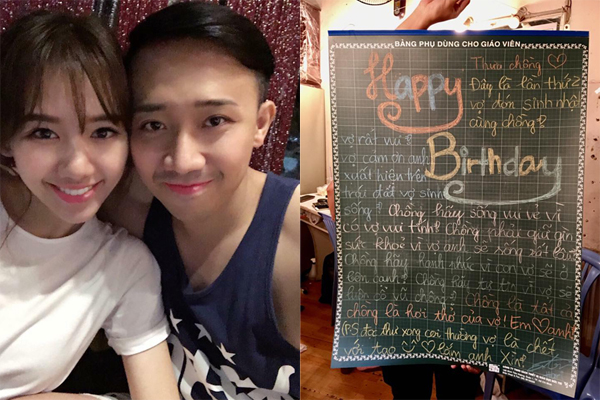 BẢNG PHỤ DÙNG CHO GIÁO VIÊN
Happy
Thưa chồng ♡
Đây là lần thứ 2
vợ đón sinh nhật
cùng chồng?
Birthday
vợ rất vui?
vợ cảm ơn anh
xuất hiện trên
trái đất vợ sinh
sống? Chồng hãy sống vui vẻ vì
có vợ vui tính? Chồng phải giữ gìn
sức khoẻ vì vợ anh sẽ sống rất lâu
Chồng hãy hạnh phúc vì con vợ sẽ ở
bên anh? Chồng hãy vì vợ sẽ
vợ chồng? Chồng là tất cả
chồng là hơi thở của vợ! Em ♡ anh
(PS đọc thư xong coi thường vợ là chết
với tao ♡ anh Xìn